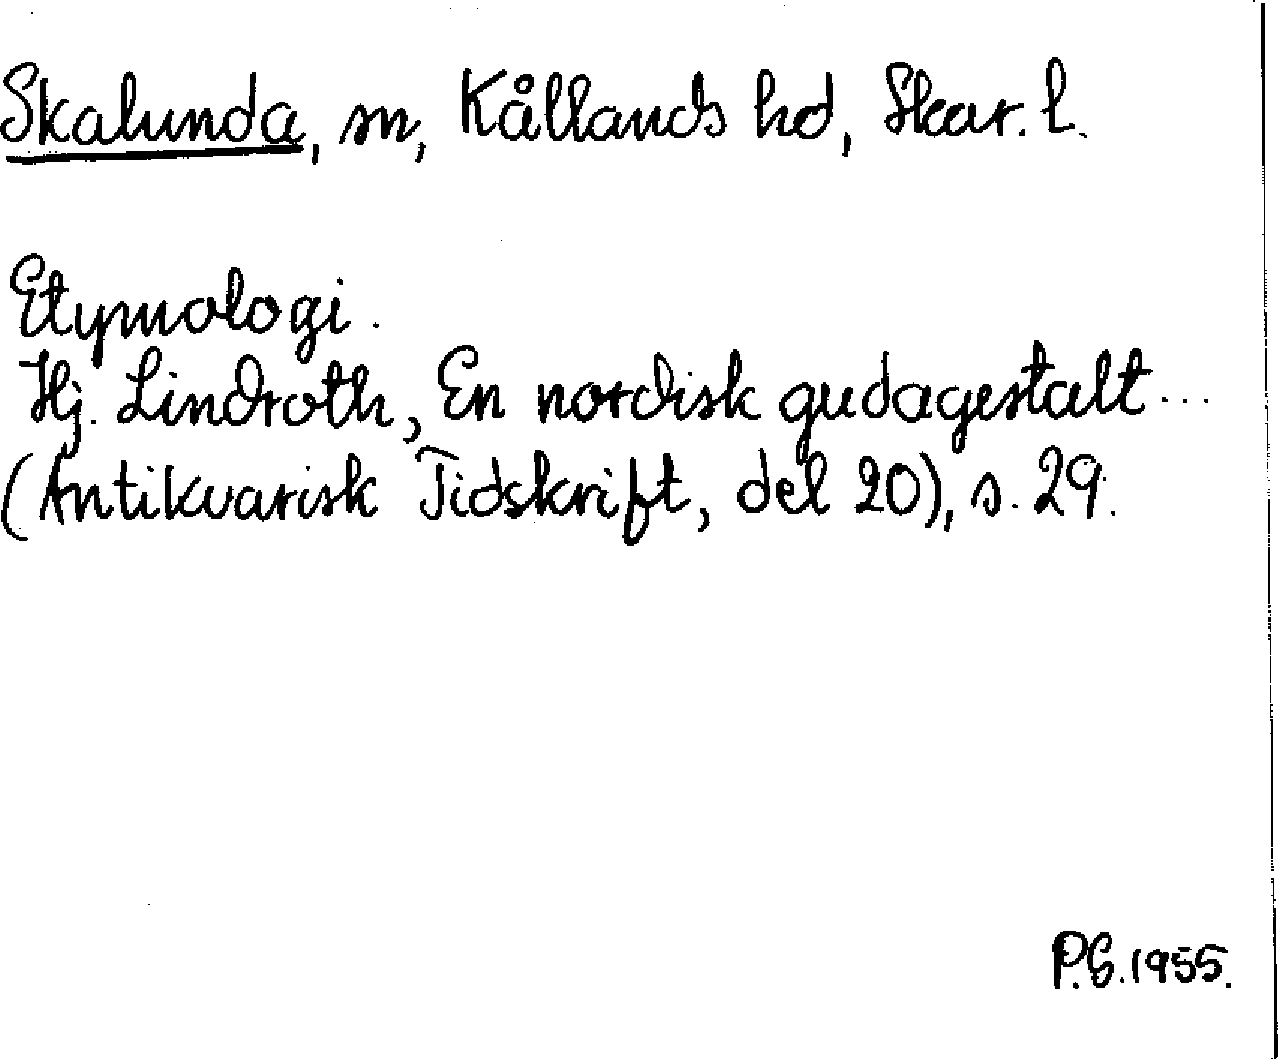 Skalunda, sn, Kållands hd, Skar. l.
Etymologi.
Hj. Lindroth, En nordisk gudagestalt...
(Antikvarisk Tidskrift, del 20), s. 29.
P.G. 1955.